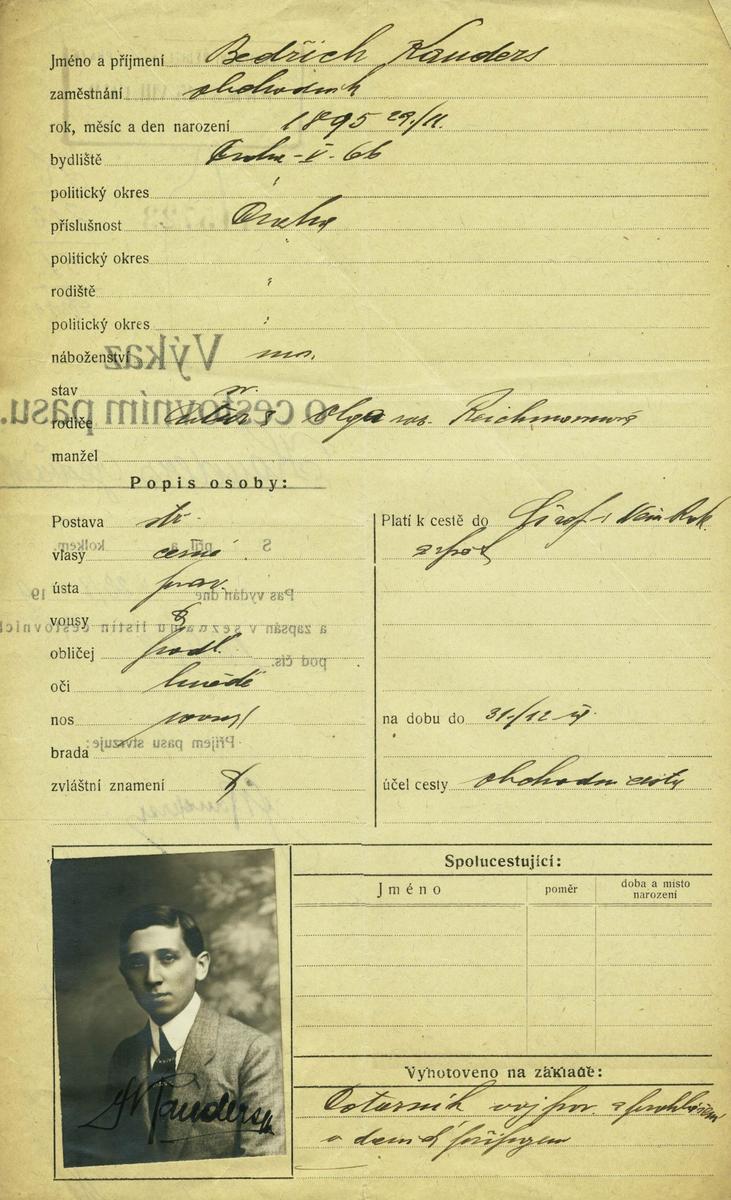 Jméno a příjmení Bedřich Kauders
zaměstnání obchodník
rok, měsíc a den narození 1895 29./11.
bydliště Praha-V-66
politický okres
příslušnost Praha
politický okres "
rodiště "
politický okres "
náboženství mos.
stav sv.
rodiče Olga roz. Reichmannová
manžel
Popis osoby:
Postava stř.
vlasy černé
ústa prav.
vousy
obličej podl.
oči hnědé
nos
brada
zvláštní znamení
Platí k cestě do
a zpět
na dobu do 31./12
účel cesty obchodní cesty
Spolucestující:
Jméno poměr doba a místo narození
Vyhotoveno na základě:
voj.
a
Kauders
Výkaz
o cestovním pasu.
S příl a kolkem.
Pas vydán dne 19
a zapsán v seznamu listin cestovních
pod čís.
Příjem pasu stvrzuje: